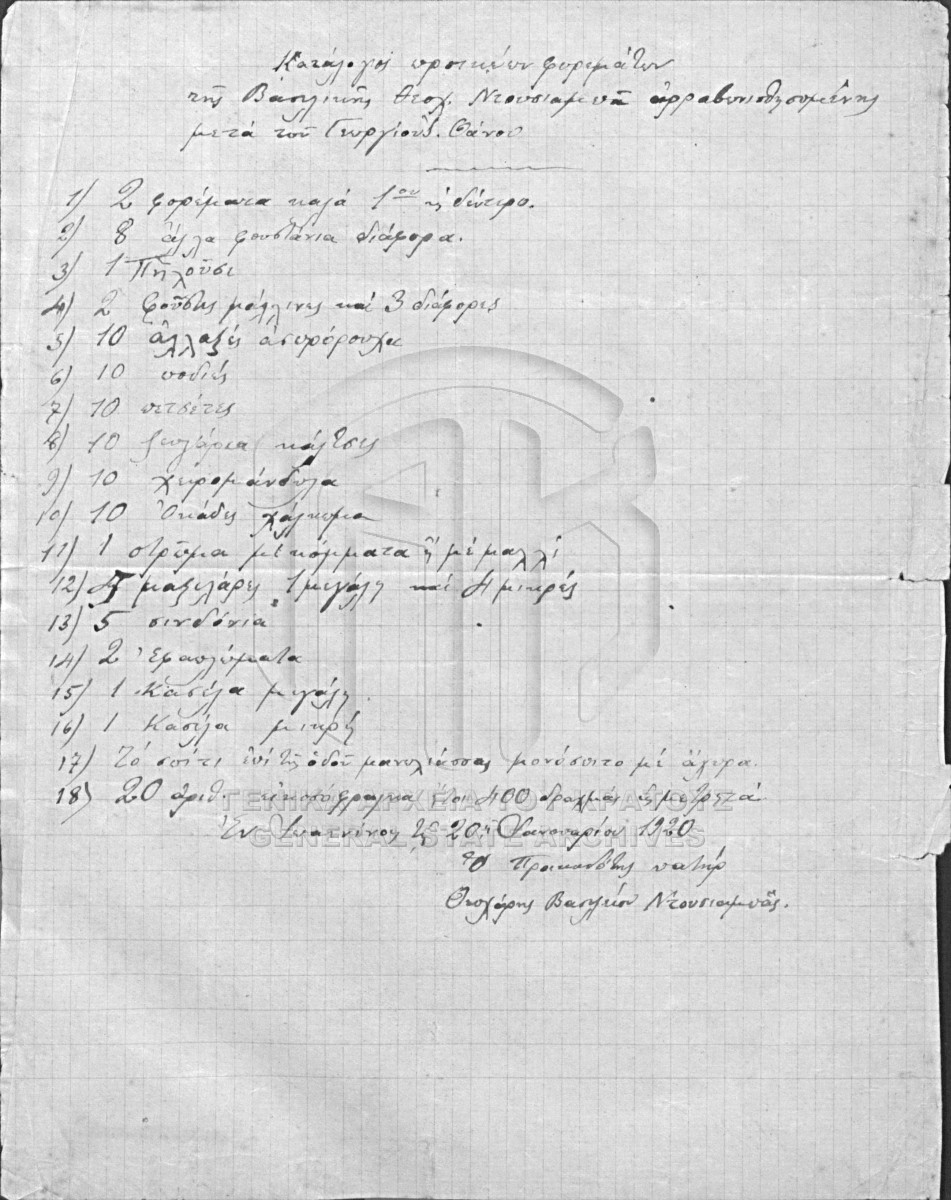 Κατάλογος προικώων φορεμάτων
τῆς Βασιλικῆς Θεοχ. Ντουσιαμπᾶ ἀρραβωνισθησομένης
μετά τοῦ Γεωργίου Δ. Θάνου
1) 2 φορέματα καλά 1ον κ δεύτερο.
2) 8 ἄλλα φουστάνια διάφορα.
3) 1 Πηλοῦσι
4) 2 φοῦστες μάλλινες καί 3 διάφορες
5) 10 ἀλλαξές ἀσπρόρουχα
6) 10 ποδιές
7) 10 πετσέτες
8) 10 ζευγάρια κάλτσες
9) 10 χειρομάνδυλα
10) 10 Ὀκάδες χάλκωμα
11) 1 στρῶμα μέ κόμματα ἤ μέ μαλλί
12) 5 μαξιλάρες 1 μεγάλη καί 4 μικρές
13) 5 σινδόνια
14) 2 Ἐφαπλώματα
15) 1 Κασέλα μεγάλη.
16) 1 Κασέλα μικρή
17) Τό σπίτι ἐπί τῆς ὁδοῦ μανωλιάσσας μονόσπιτο μέ ἄχυρα.
18) 20 ἀριθ. εἰκοσόφραγκα ἤτοι 400 δραχμῶν εἰς μετρητά
Ἐν τῇ 20ῇ Ἰανουαρίου 1920
Ὁ Προικοδότης πατήρ
Θεοχάρης Βασιλείου Ντουσιαμπᾶς.
ΓΕΝΙΚΑ ΑΡΧΕΙΑ ΤΟΥ ΚΡΑΤΟΥΣ
GENERAL STATE ARCHIVES